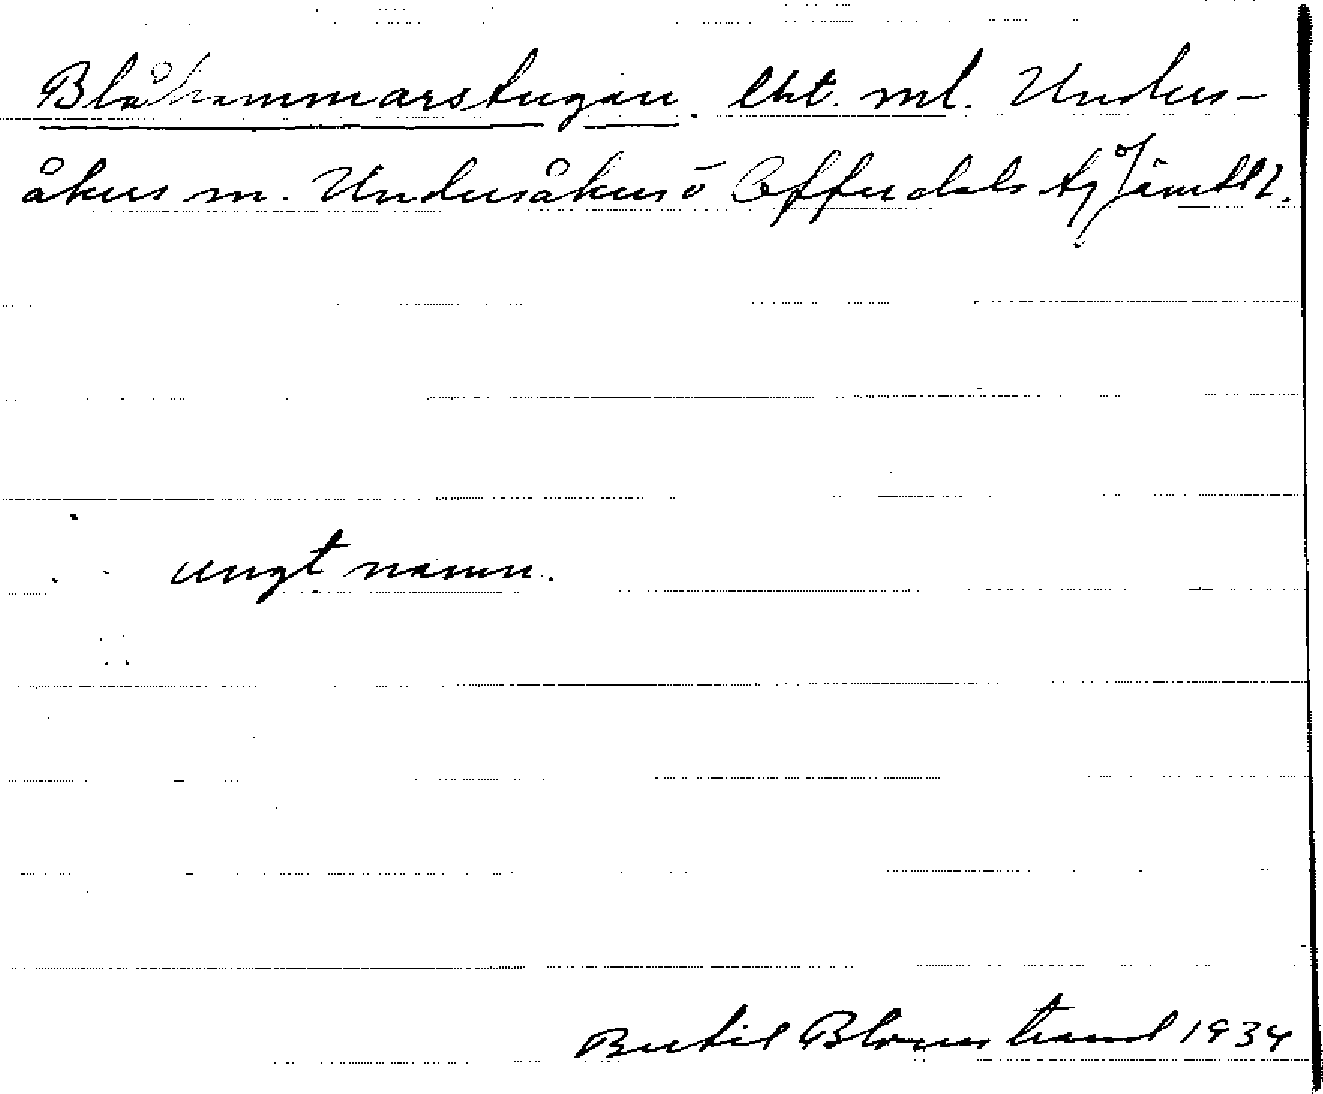 Blåhammarstugan. lht. ml. Unders-
åkers m. Undersåkers o Offerdals tg Jämtl l.
ungt namn.
Bertil Blomstrand 1934